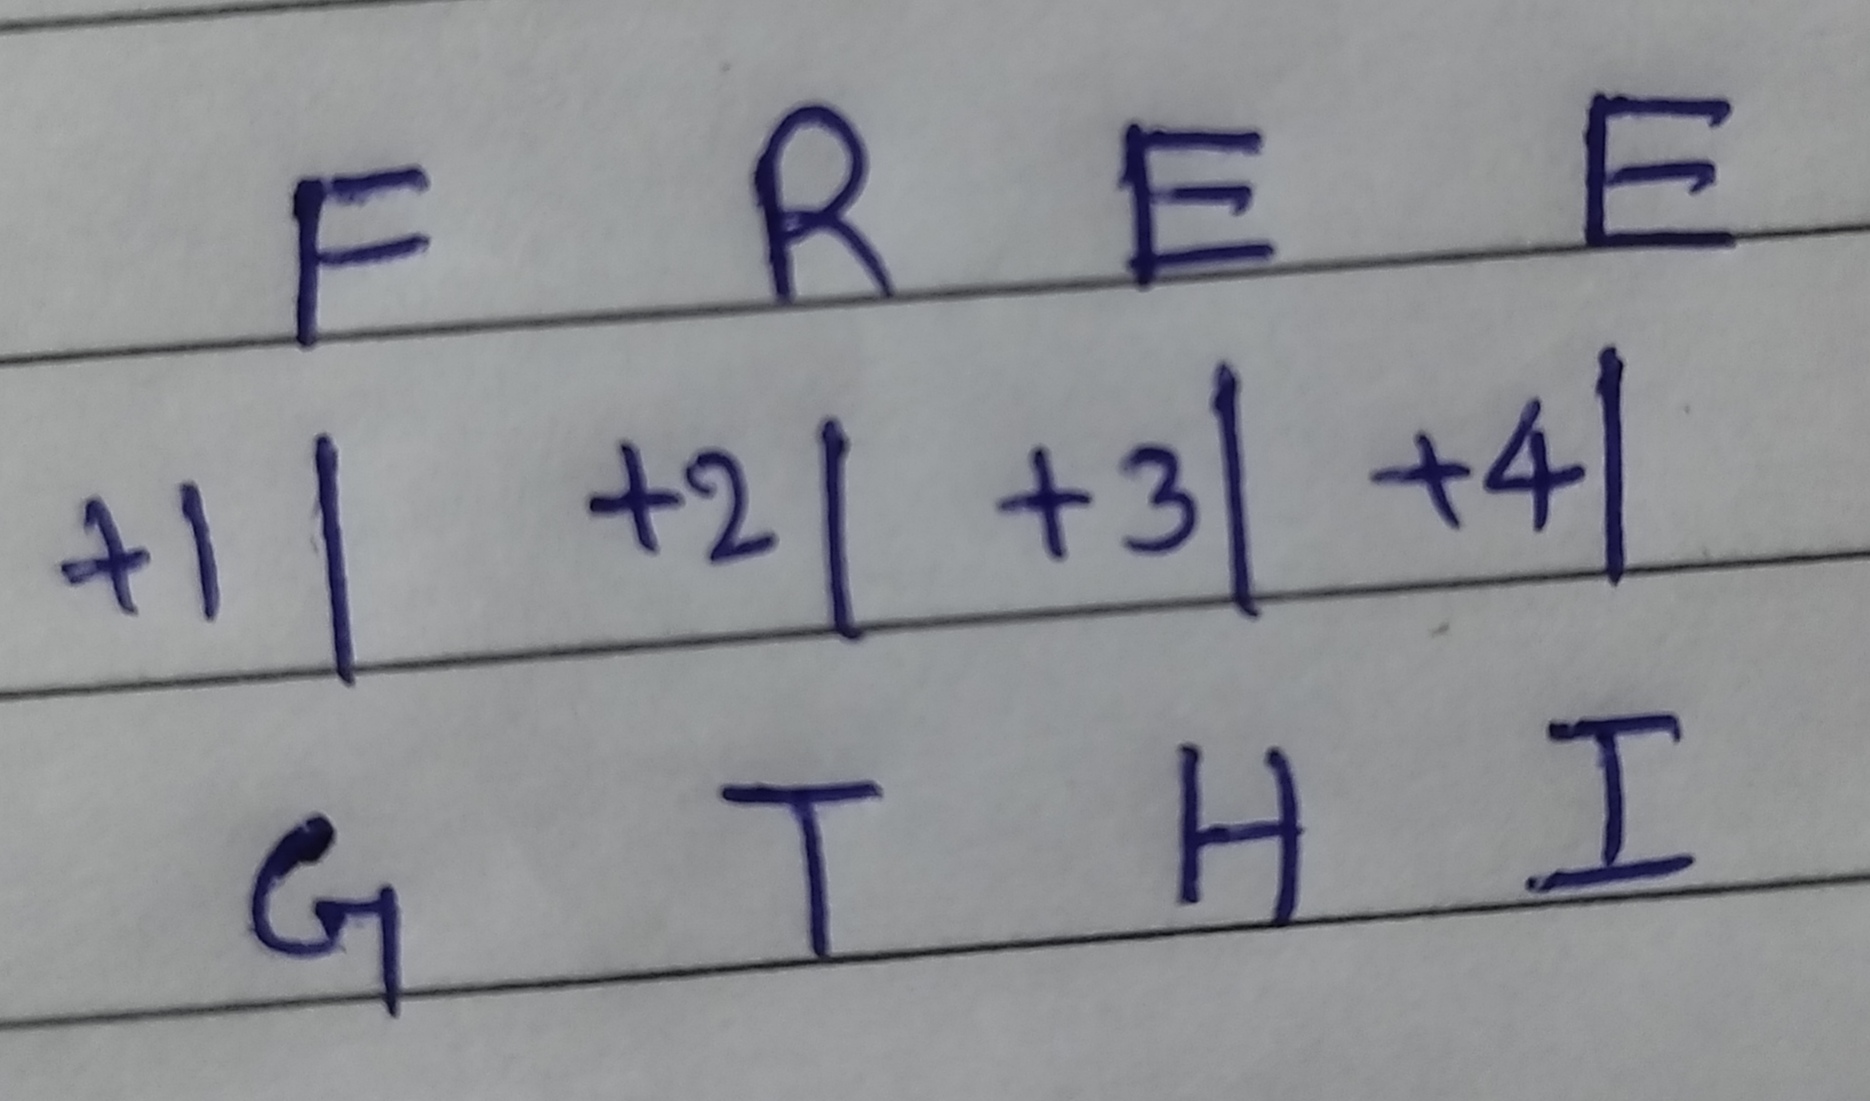 F R E E
+1| +2| +3| +4|
G T H I